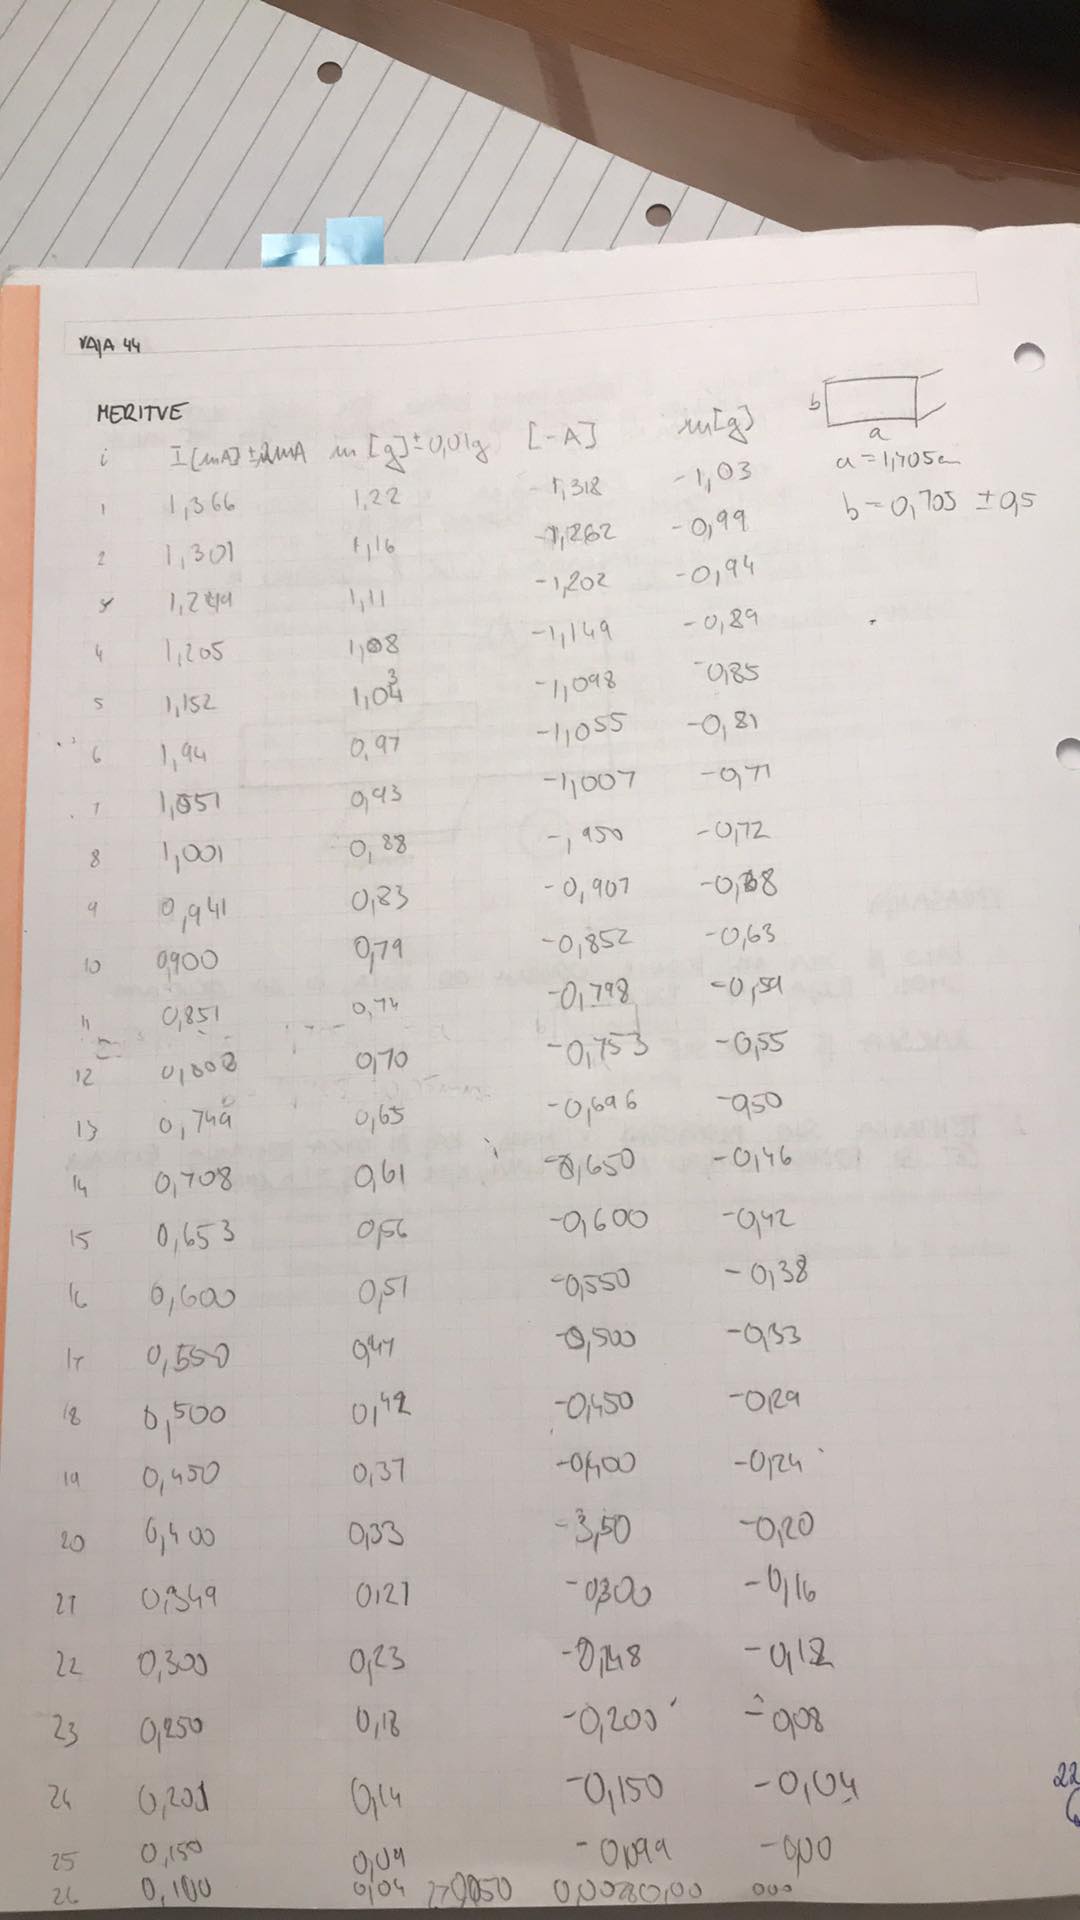 VAJA 44
MERITVE
b
a
a = 1,705cm
b = 0,705 ± 0,5
i I [mA] ± 2mA m [g] ± 0,01g [-A] m[g]
1 1,366 1,22 -1,318 -1,03
2 1,301 1,16 -1,262 -0,99
3 1,249 1,11 -1,202 -0,94
4 1,205 1,08 -1,149 -0,89
5 1,152 1,03 -1,098 -0,85
6 1,94 0,97 -1,055 -0,81
7 1,051 0,93 -1,007 -0,77
8 1,001 0,88 -1,950 -0,72
9 0,941 0,83 -0,907 -0,68
10 0,900 0,79 -0,852 -0,63
11 0,851 0,74 -0,798 -0,59
12 0,808 0,70 -0,753 -0,55
13 0,749 0,65 -0,696 -0,50
14 0,708 0,61 -0,650 -0,46
15 0,653 0,56 -0,600 -0,42
16 0,600 0,51 -0,550 -0,38
17 0,550 0,47 -0,500 -0,33
18 0,500 0,42 -0,450 -0,29
19 0,450 0,37 -0,400 -0,24
20 0,400 0,33 -3,50 -0,20
21 0,349 0,27 -0,300 -0,16
22 0,300 0,23 -0,248 -0,12
23 0,250 0,18 -0,200 -0,08
24 0,201 0,14 -0,150 -0,04
25 0,150 0,09 -0,099 -0,00
26 0,100 0,04
22